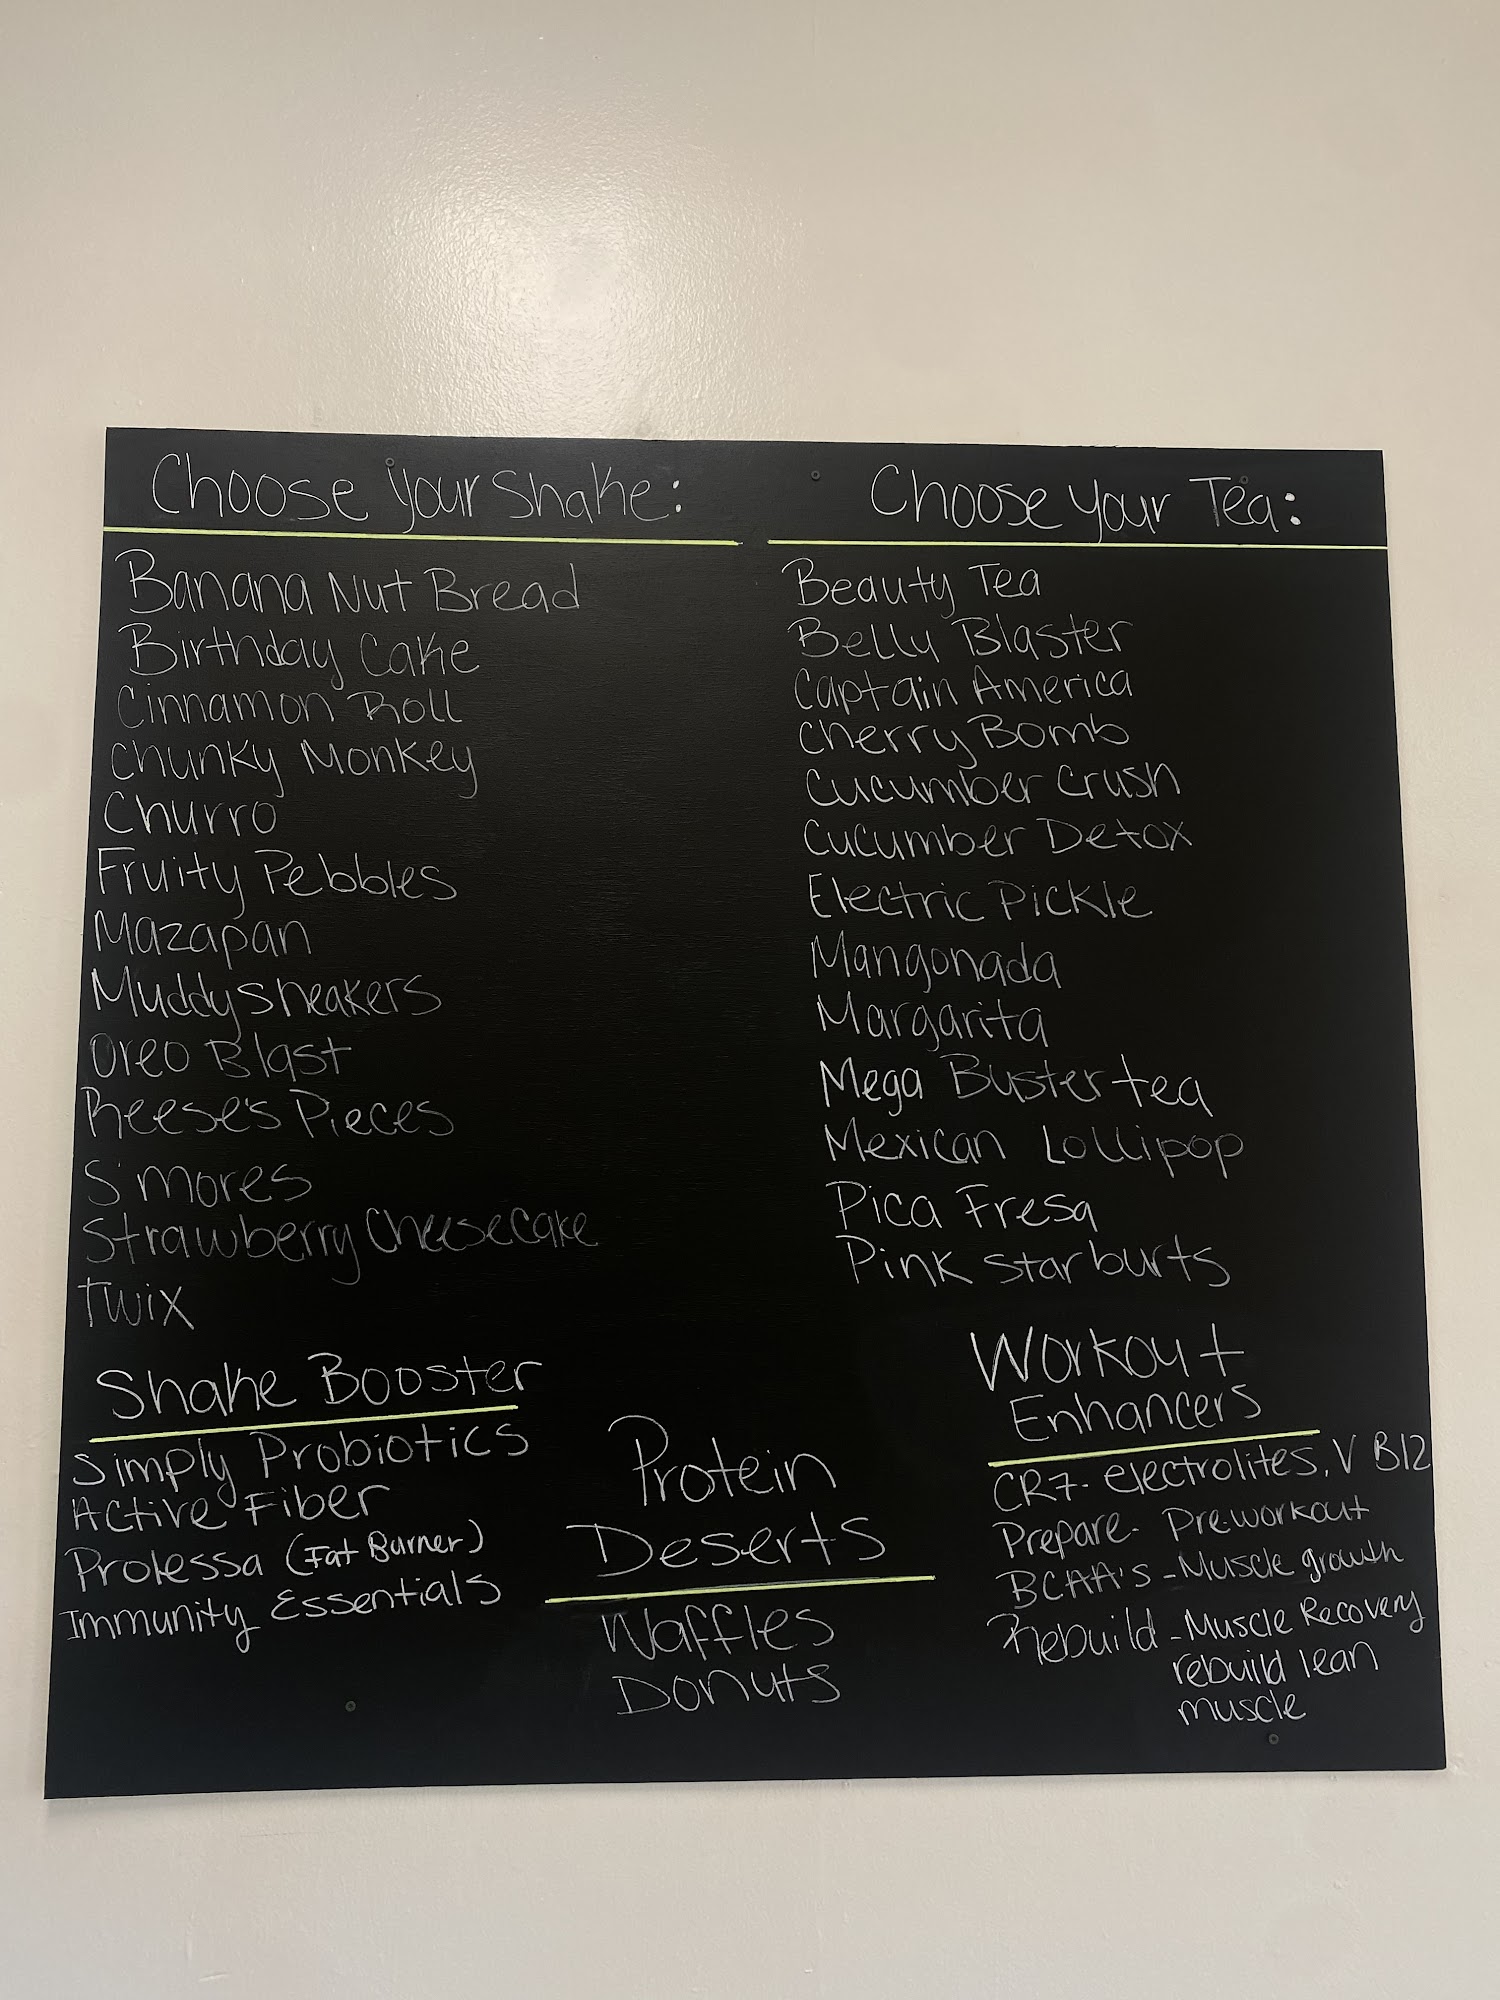 Choose your Shake:
Banana Nut Bread
Birthday Cake
Cinnamon Roll
Chunky Monkey
Churro
Fruity Pebbles
Mazapan
Muddy sneakers
Oreo Blast
Reese's Pieces
S'mores
Strawberry Cheesecake
Twix
Shake Booster
Simply Probiotics
Active Fiber
Prolessa (Fat Burner)
Immunity Essentials
Choose your Tea:
Beauty Tea
Belly Blaster
Captain America
Cherry Bomb
Cucumber Crush
Cucumber Detox
Electric Pickle
Mangonada
Margarita
Mega Buster tea
Mexican Lollipop
Pica Fresa
Pink starburts
Protein
Deserts
Waffles
Donuts
Workout
Enhancers
CR7- electrolites, V B12
Prepare- Pre-workout
BCAA's - Muscle growth
Rebuild - Muscle Recovery
rebuild lean
muscle